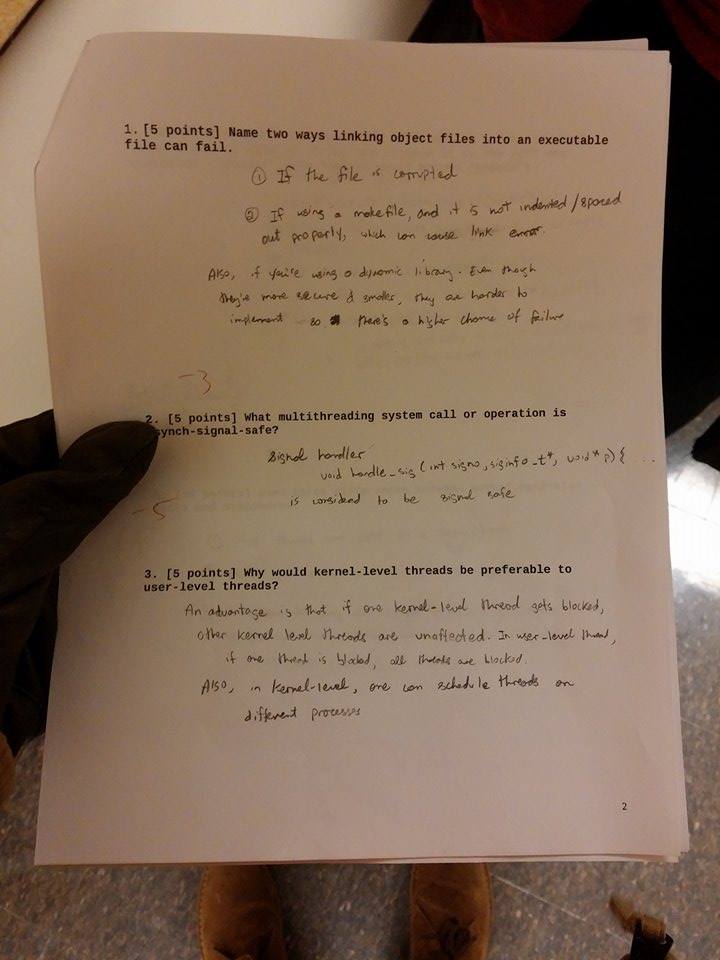 1. [5 points] Name two ways linking object files into an executable
file can fail.
① If the file is corrupted
② If using a makefile, and it is not indented/spaced
out properly, which can cause link error.
Also, if you're using a dynamic library. Even though
they're more secure & smaller, they are harder to
implement so there's a higher chance of failure
-3
2. [5 points] What multithreading system call or operation is
synch-signal-safe?
Signal handler
void handle_sig (int signo, siginfo_t*, void* p) { ...
is considered to be signal safe
-5
3. [5 points] Why would kernel-level threads be preferable to
user-level threads?
An advantage is that if one kernel-level thread gets blocked,
other kernel level threads are unaffected. In user-level thread,
if one thread is blocked, all threads are blocked.
Also, in kernel-level, one can schedule threads on
different processes
2